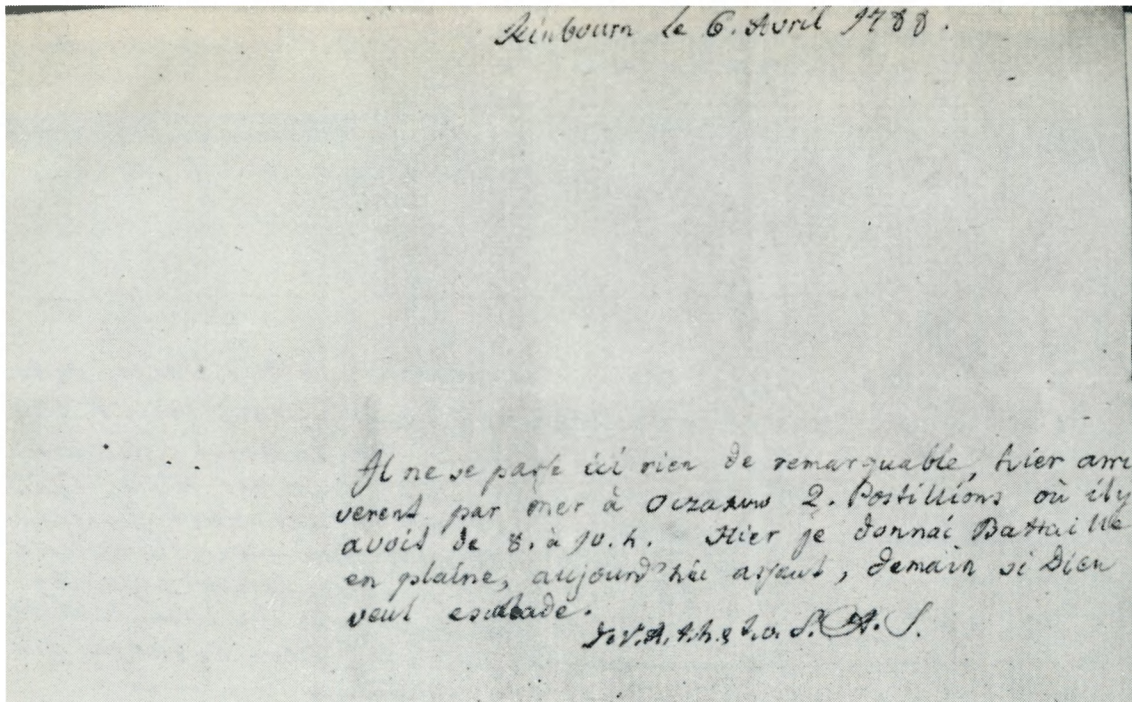 Kinbourn le 6. Avril 1788.
Il ne se passe ici rien de remarquable, hier arri
verent par mer à Oczakow 2. Postillions où il y
avoit de 8. à 10. h. Hier je donnai Battaille
en plaine, aujourd'hui assaut, demain si Dieu
veut escalade.
de V. A. t. h. & t. o. S. A. S.